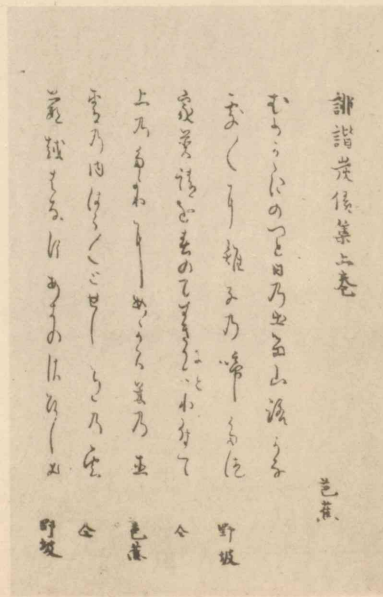 誹諧炭俵集上巻
芭蕉
むめがゝにのつと日の出る山路かな
処〱に雉子の啼たつ 野坡
家普請を春のてすきにとり付て 仝
上のたよりにあがる米の直 芭蕉
宵の内ばら〱とせし月の雲 仝
藪越はなすあきのさびしき 野坡